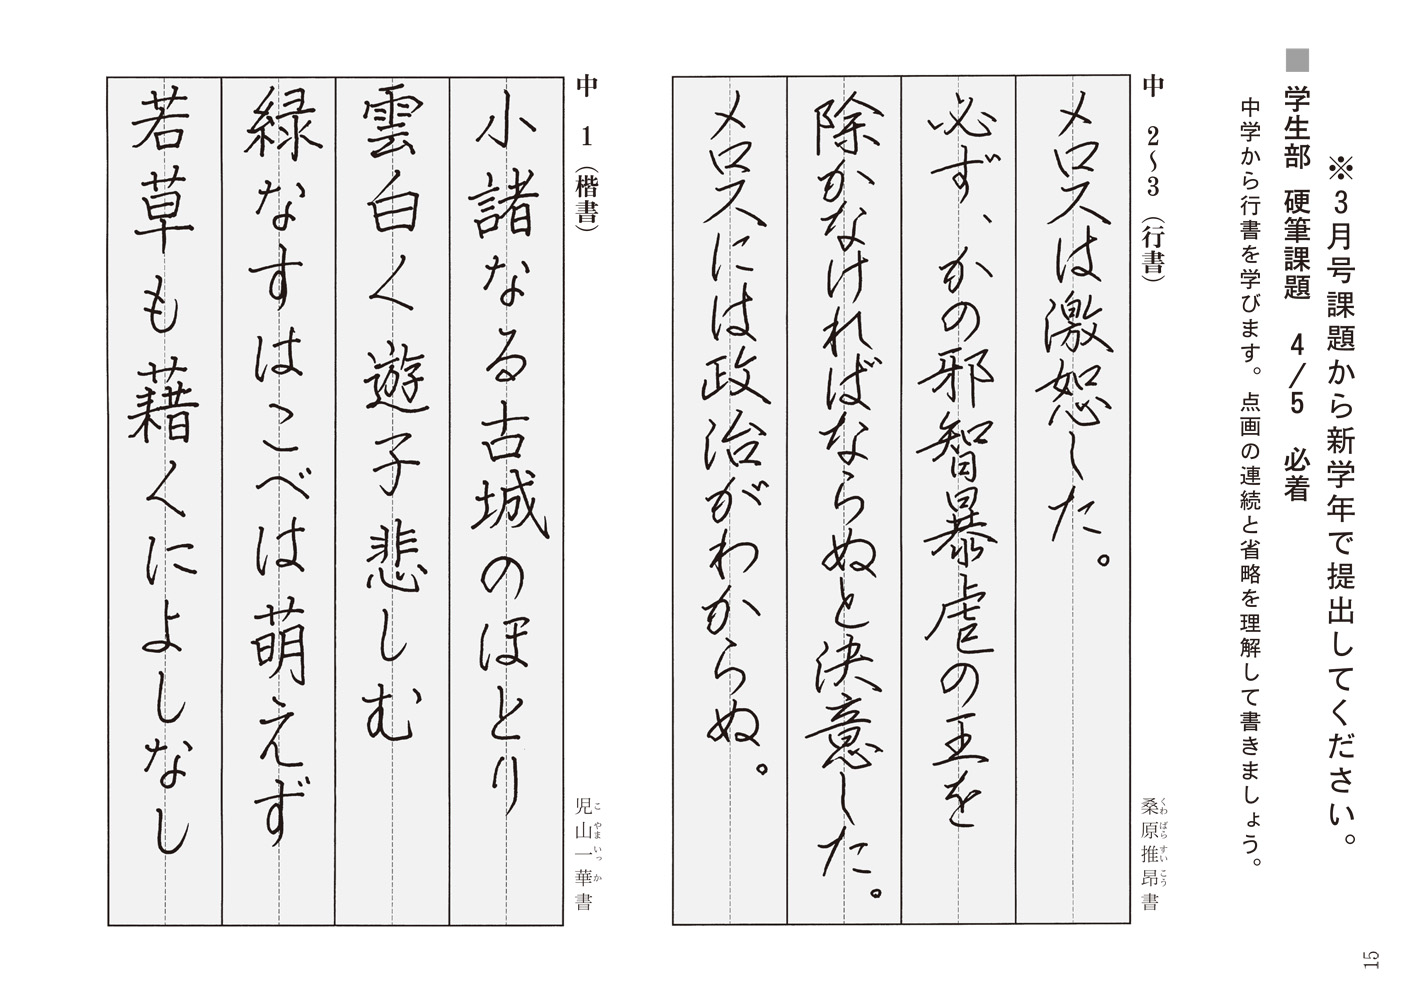 ※3月号課題から新学年で提出してください。
■ 学生部 硬筆課題 4/5 必着
中学から行書を学びます。点画の連続と省略を理解して書きましょう。
中 2〜3（行書）
桑原推昂書
くわ ばら すい こう
メロスは激怒した。
必ず、かの邪智暴虐の王を
除かなければならぬと決意した。
メロスには政治がわからぬ。
中 1（楷書）
児山一華書
こ やま いっ か
小諸なる古城のほとり
雲白く遊子悲しむ
緑なすはこべは萌えず
若草も藉くによしなし
15